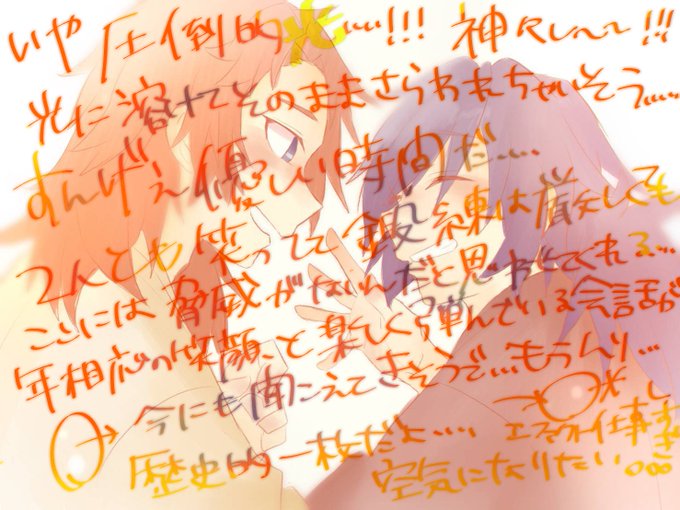 いや 圧倒的光……!!! 神々しい〜!!!
光に溶けてそのままさらわれちゃいそう……
すんげえ優しい時間だ……
2人とも笑ってて 鍛練は厳しくても
ここには脅威がないんだと思わせてくれる…
年相応の笑顔、と楽しく弾んでいる会話が
今にも聞こえてきそうで…もうムリ…
歴史的一枚だよ……
空気になりたい